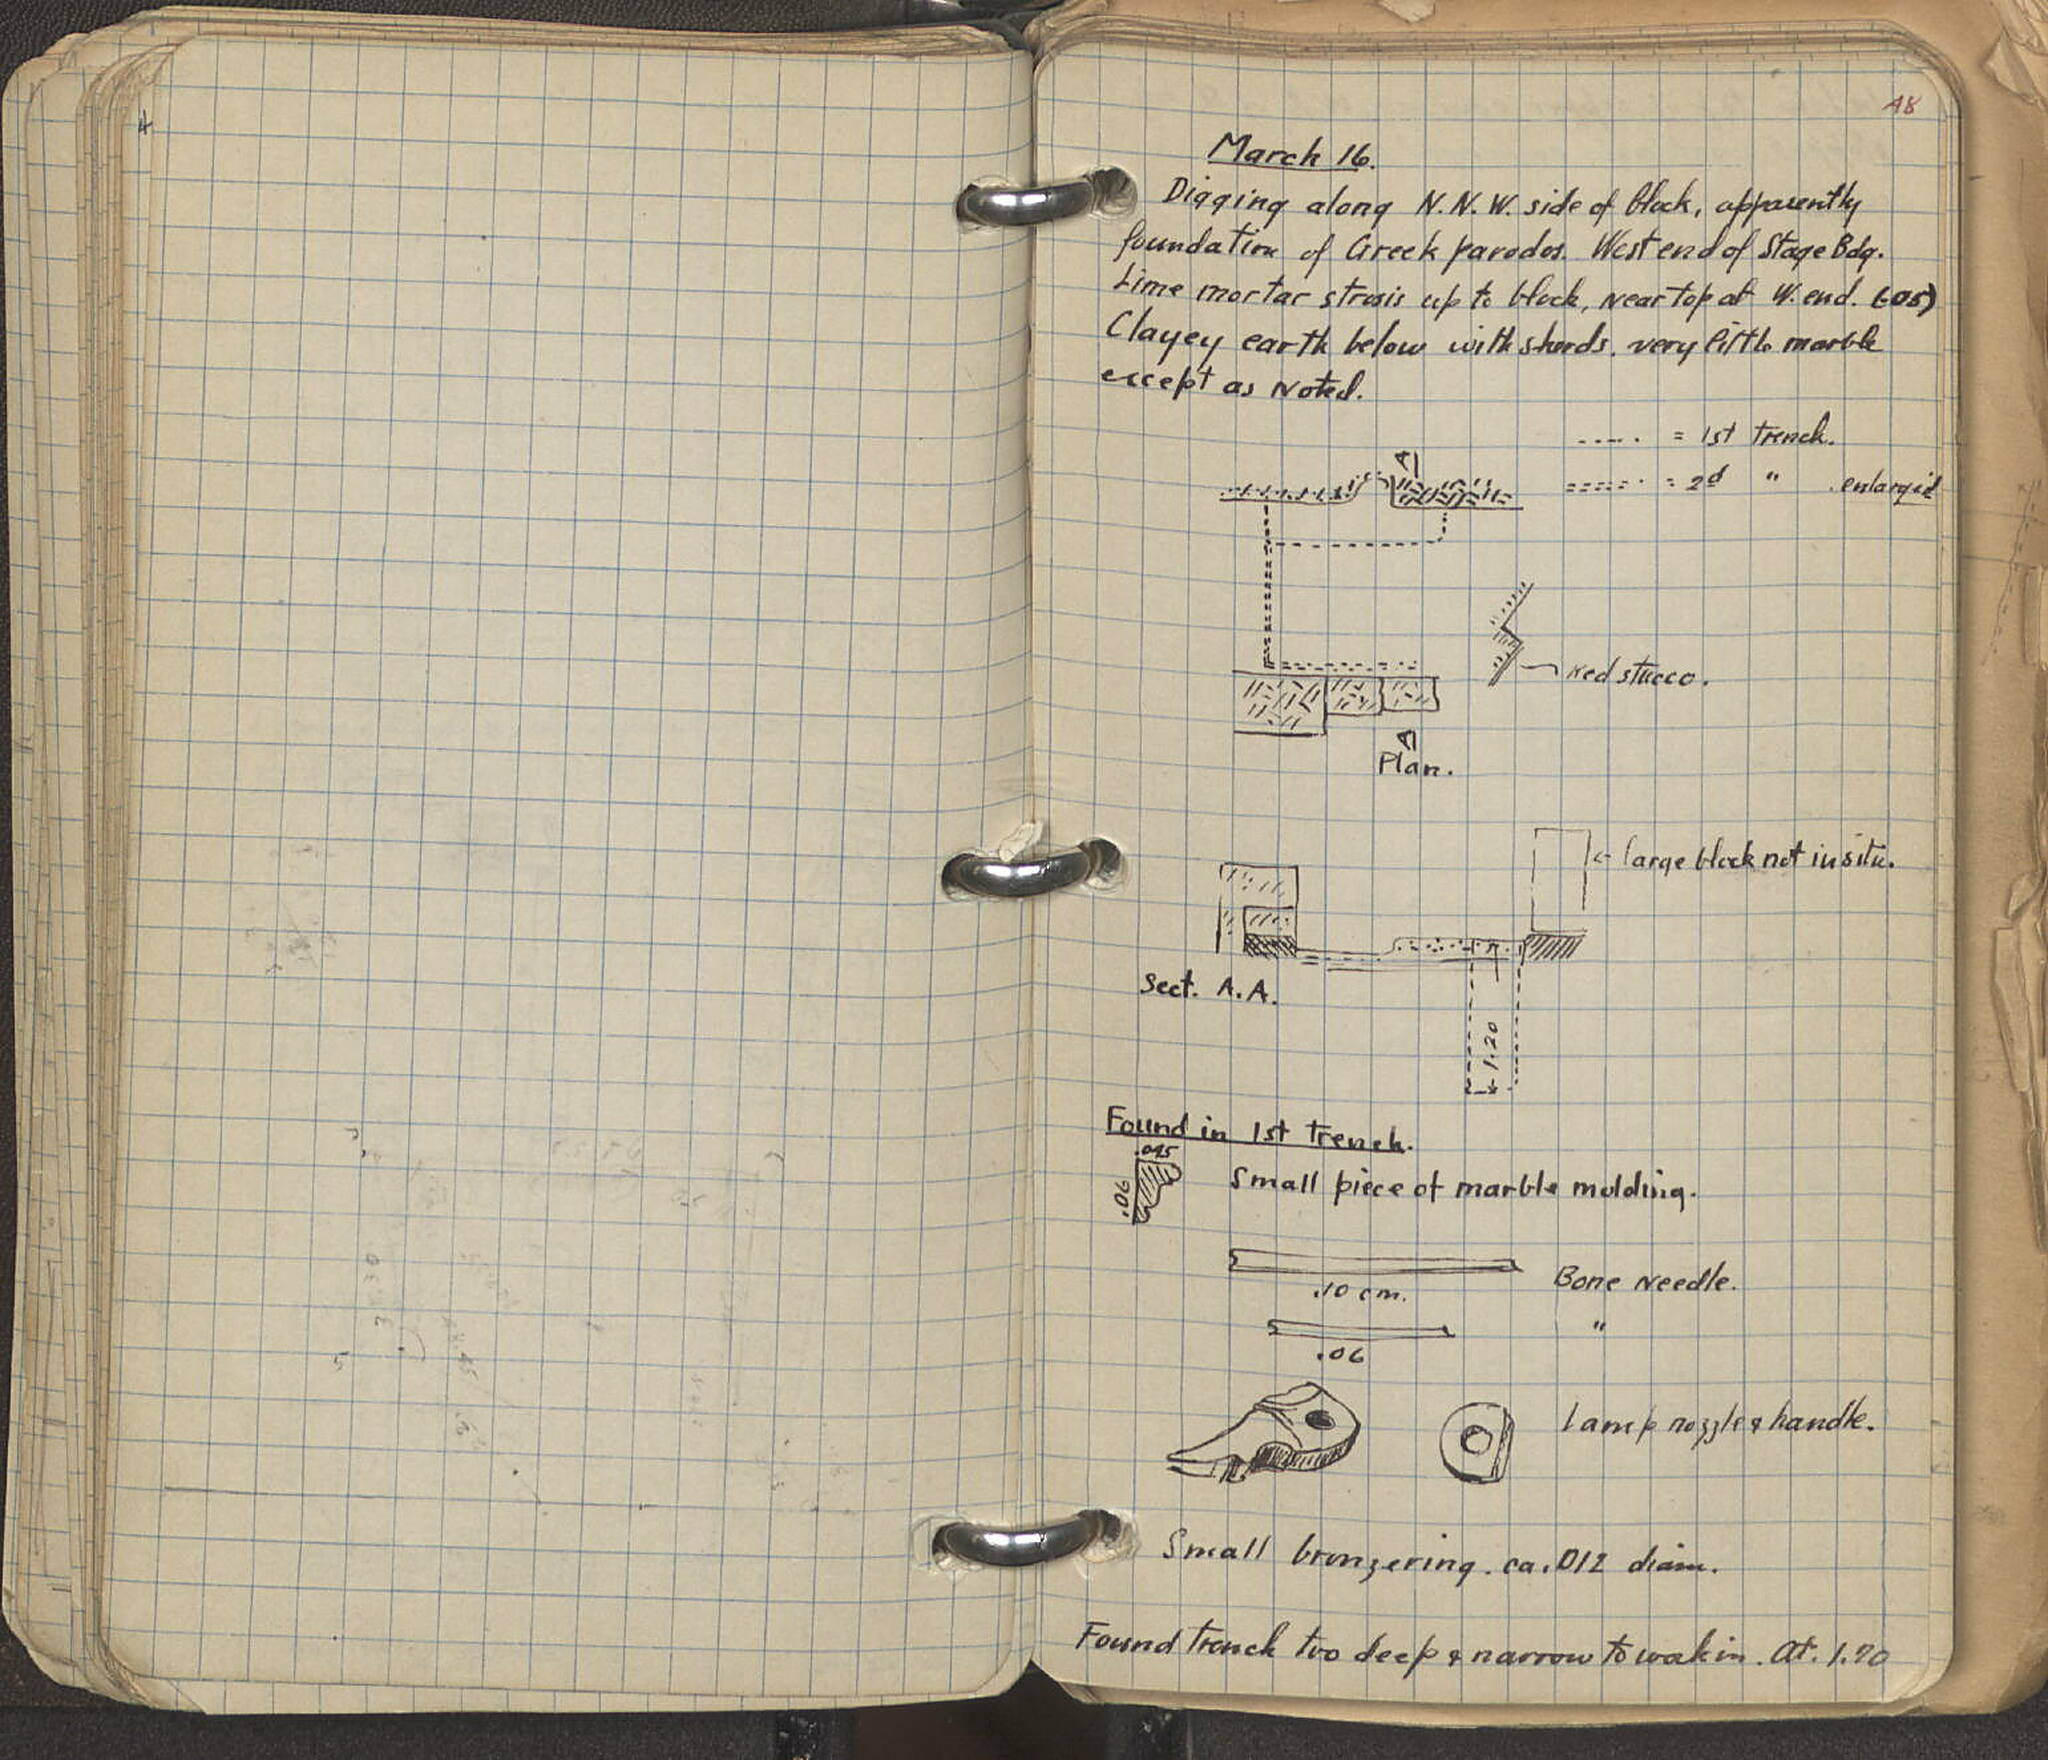 48
March 16.
Digging along N.N.W. side of block, apparently
foundation of Greek parodos. West end of Stage Bdg.
Lime mortar strosis up to block, near top at W. end. (-05)
Clayey earth below with sherds. very little marble
except as noted.
= 1st Trench.
= 2d " enlarged
A
Red stucco.
A
Plan.
large block not in situ.
Sect. A.A.
1.20
Found in 1st trench.
.06
Small piece of marble molding.
.10 cm.
Bone Needle.
.06
"
Lamp nozzle & handle.
Small bronze ring. ca. .012 diam.
Found trench too deep & narrow to work in. At.